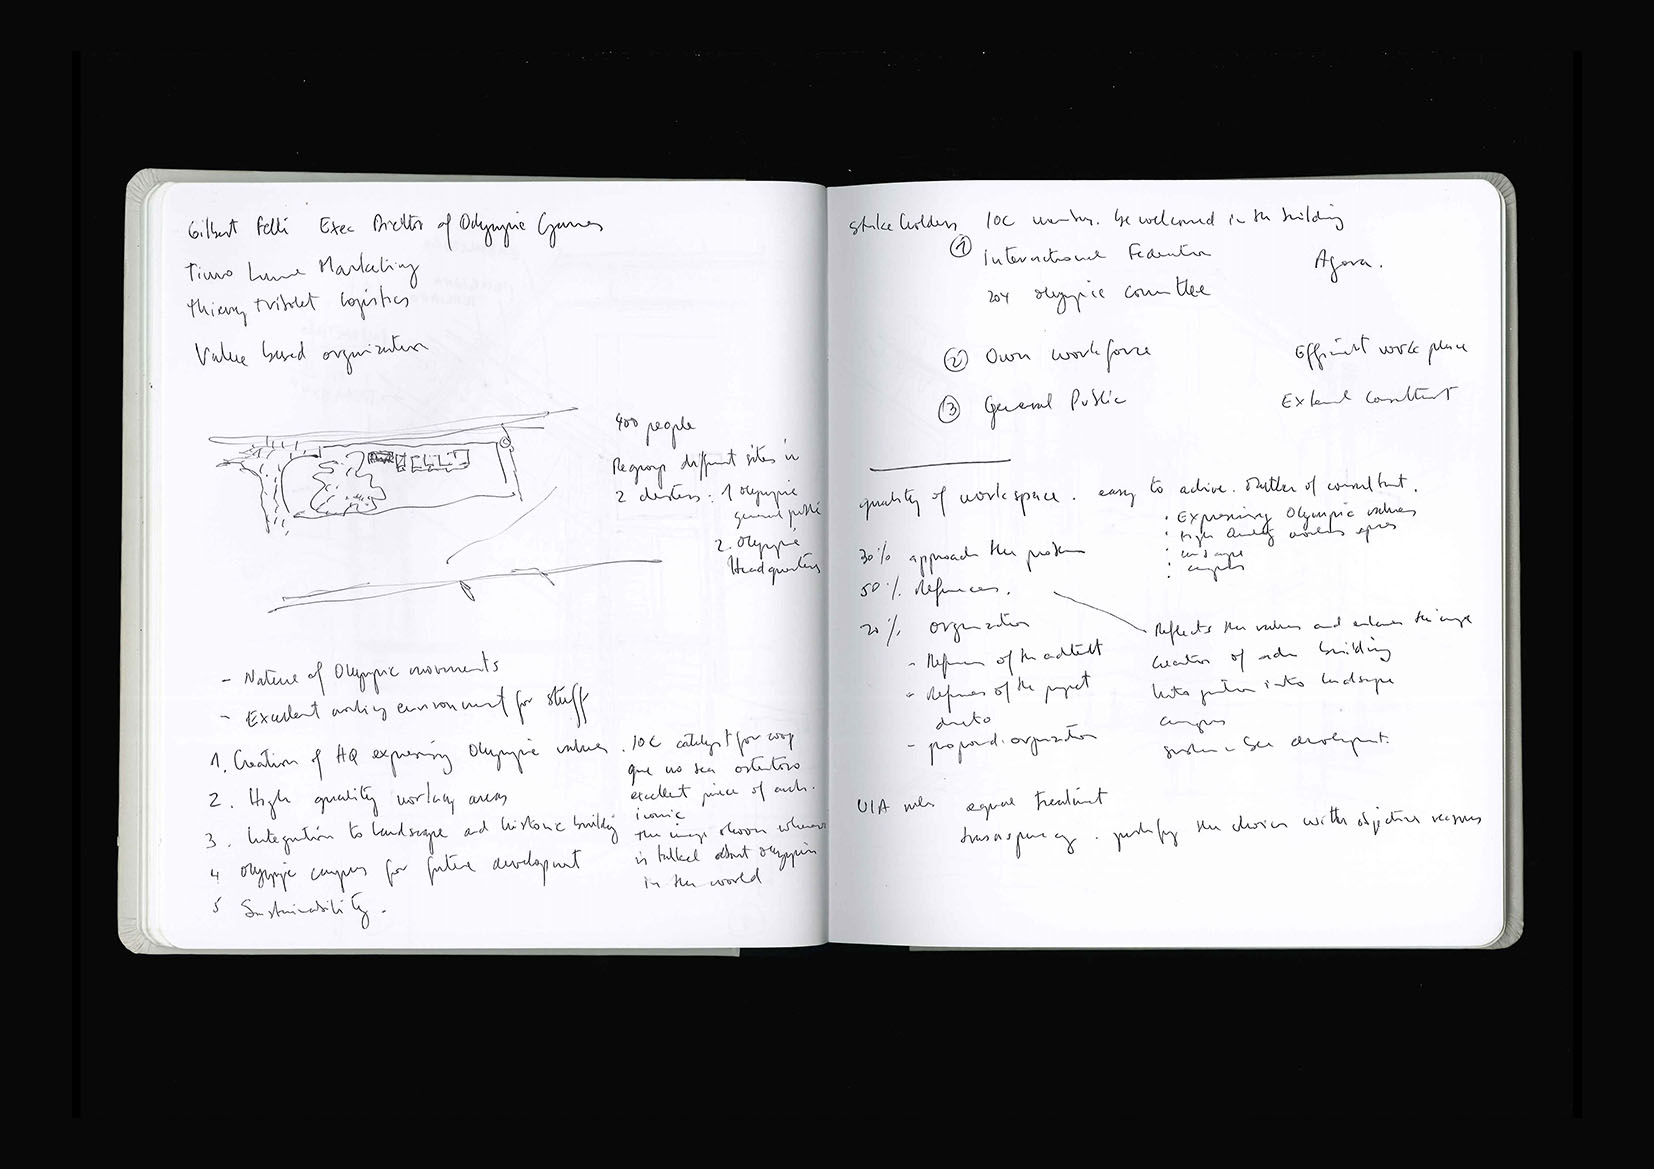 Gilbert Felli Exec Director of Olympic Games
Timo Lume Marketing
Thierry Logistics
Value based organization
400 people
Regroup different sites in
2 clusters: 1 Olympic
general public
2. Olympic
Headquarters
- Nature of Olympic movements
- Excellent working environment for staff
1. Creation of HQ expressing Olympic values
2. High quality working areas
3. Integration to landscape and historic building
4 Olympic campus for future development
5 Sustainability.
. IOC catalyst for coop
que no sea ostentoso
excellent piece of arch.
iconic
the image shown whenever
is talked about olympism
in the world
Stakeholders IOC members. be welcomed in the building
① International Federation
204 olympic committee
Agora.
② Own workforce Efficient work place
③ General Public
quality of workspace. easy to
. Expressing Olympic values
. High Quality working spaces
. landscape
. campus
30% approach the problem
50% References.
20% organization
- References of the architect
- References of the project
- proposed organization
Reflects the values and the image
Creation of building
Integration into landscape
campus
development.
UIA rules equal treatment
transparency. justify the choice with objective reasons